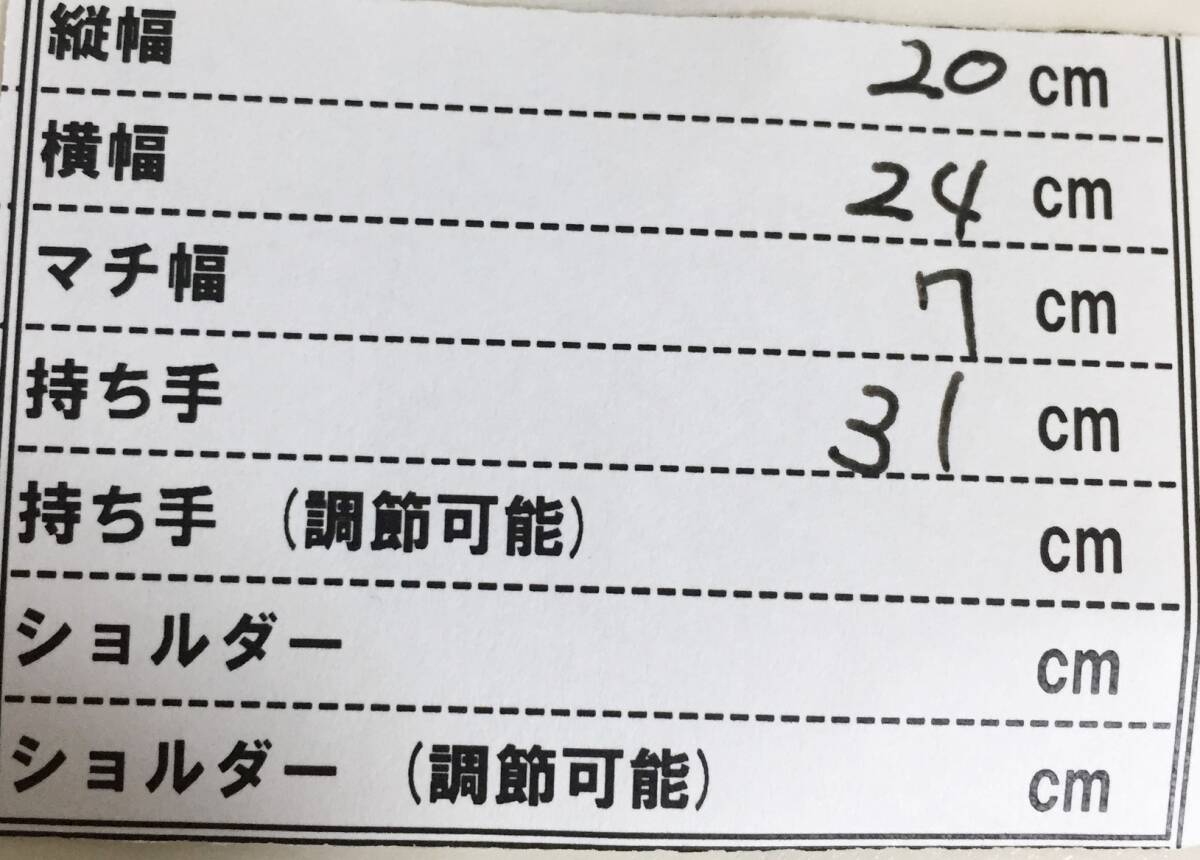 縦幅 20 cm
横幅 24 cm
マチ幅 7 cm
持ち手 31 cm
持ち手 (調節可能) cm
ショルダー cm
ショルダー (調節可能) cm